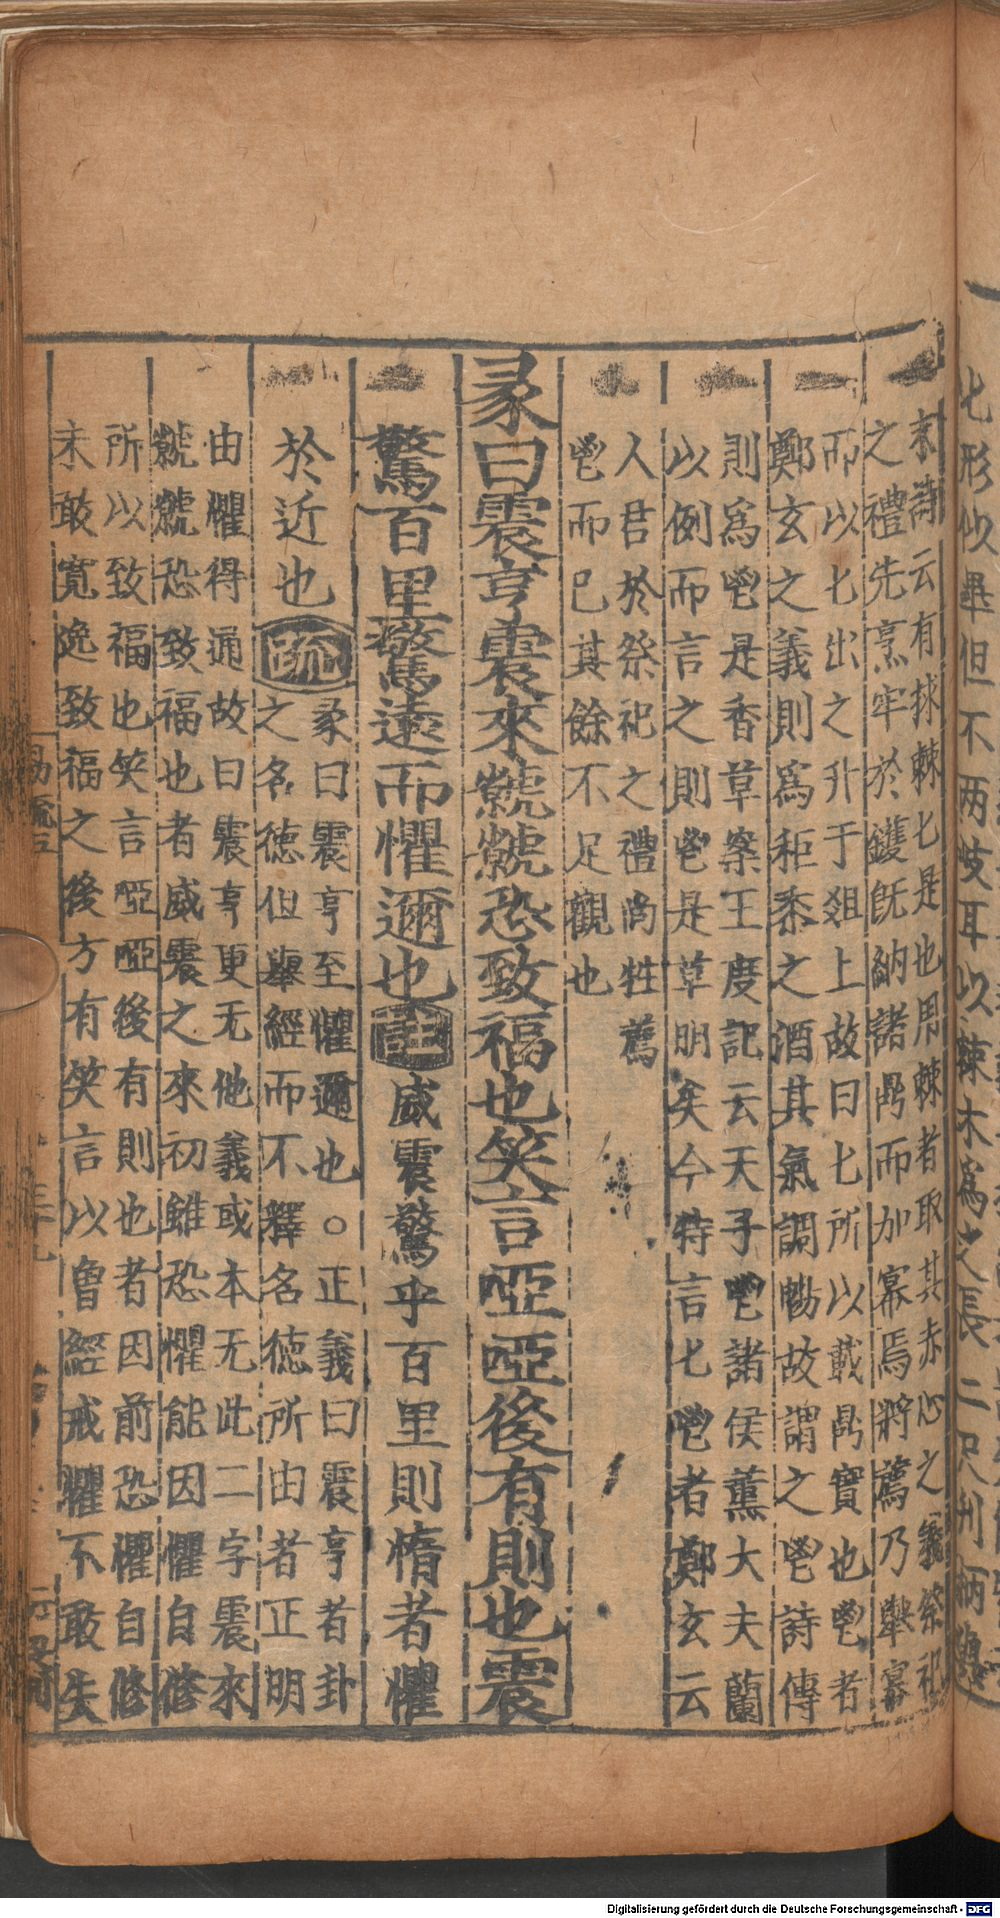 七形似畢但不两岐耳以棘木爲之長二尺刊柄與
末詩云有捄棘匕是也用棘者取其赤心之義祭祀
之禮先烹牢於鑊旣納諸鼎而加冪焉將薦乃舉冪
而以匕出之升于爼上故曰匕所以載鼎實也鬯者
鄭玄之義則爲秬黍之酒其氣調暢故謂之鬯詩傳
則爲鬯是香草案王度記云天子鬯諸侯薰大夫蘭
以例而言之則鬯是草明矣今特言匕鬯者鄭玄云
人君於祭祀之禮尚牲薦
鬯而已其餘不足觀也
彖曰震亨震來虩虩恐致福也笑言啞啞後有則也震
驚百里驚遠而懼邇也註威震驚乎百里則惰者懼
於近也疏彖曰震亨至懼邇也○正義曰震亨者卦
之名德但舉經而不釋名德所由者正明
由懼得通故曰震亨更无他義或本无此二字震來
虩虩恐致福也者威震之來初雖恐懼能因懼自修
所以致福也笑言啞啞後有則也者因前恐懼自修
未敢寬逸致福之後方有笑言以曾經戒懼不敢失
Digitalisierung gefördert durch die Deutsche Forschungsgemeinschaft - DFG